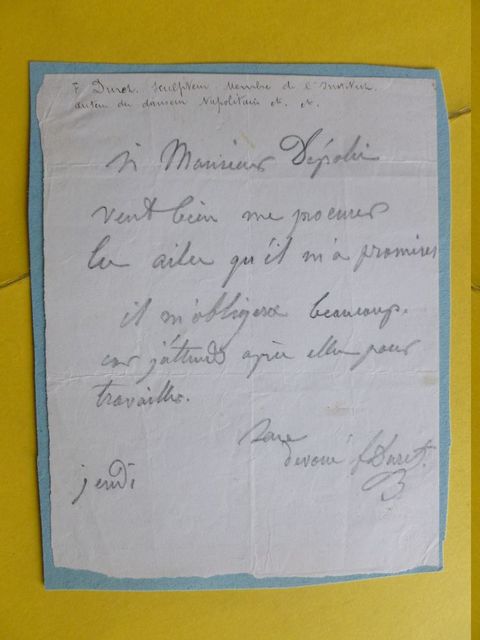 F Duret. sculpteur membre de l'Institut
auteur du danseur Napolitain et. et.
Si Monsieur Dépolin
veut bien me procurer
les ailes qu'il m'a promises
il m'obligera beaucoup.
car j'attends après elles pour
travailler.
dévoué F Duret.
jeudi